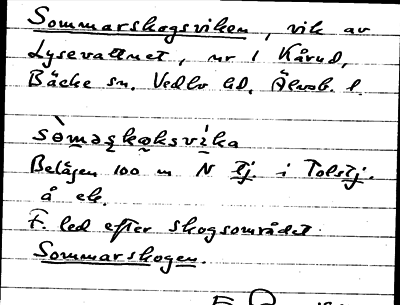 Sommarskogsviken, vik av
Lysevattnet, nr 1 Kårud,
Bäcke sn. Vedbo hd. Älvsb. l.
sòmaskoksvi̍ka
Belägen 100 m N Tj. i Tolstj.
å ek.
F. led efter skogsområdet
Sommarskogen.